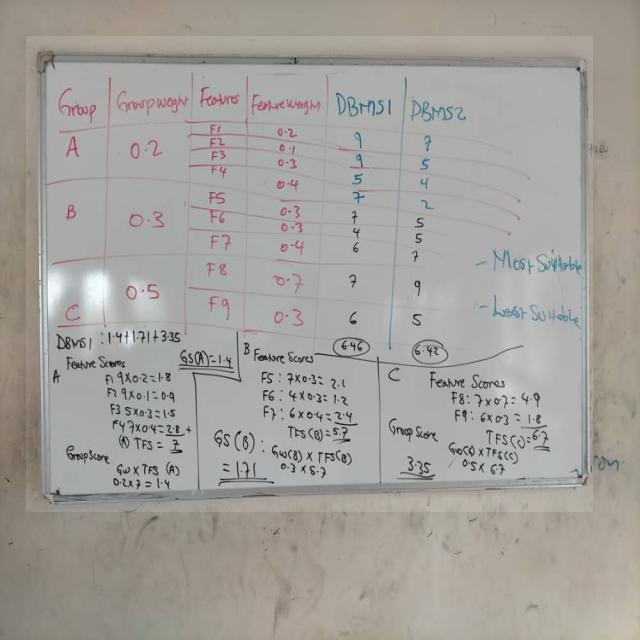 Group Group weight Features Feature weight DBMS1 DBMS2
A 0.2 F1 0.2 9 7
F2 0.1 9 5
F3 0.3 5 4
F4 0.4 7 2
B 0.3 F5 0.3 7 5
F6 0.3 4 5
F7 0.4 6 7
C 0.5 F8 0.7 7 9
F9 0.3 6 5
- Most Suitable
- Least Suitable
6.46 6.42
DBMS1 : 1.4+1.71+3.35
A
Feature Scores
F1 9x0.2=1.8
F2 9x0.1=0.9
F3 5x0.3=1.5
F4 7x0.4=2.8 +
(A) TFS = 7
Group Score
GW x TFS (A)
0.2x7=1.4
GS(A)=1.4
B Feature Scores
F5: 7x0.3= 2.1
F6: 4x0.3=1.2
F7: 6x0.4=2.4
TFS(B)=5.7
GS (B) : GW(B) x TFS(B)
= 1.71 0.3 x 5.7
C Feature Scores
F8: 7x0.7=4.9
F9: 6x0.3=1.8
TFS(C)=6.7
Group Score
GW(C) x TFS(C)
3.35 0.5 x 6.7